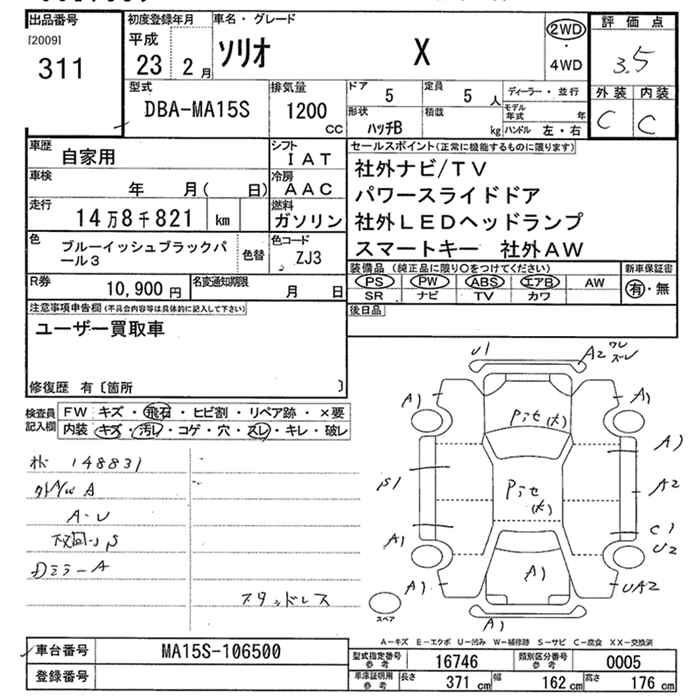 出品番号
[2009]
311
初度登録年月
平成
23 2月
車名・グレード
ソリオ X
2WD
・
4WD
評価点
3.5
外装 内装
C C
型式
DBA-MA15S
排気量
1200
CC
ドア
5
定員
5 人
ディーラー・並行
形状
ハッチB
積載
kg
モデル年式 年
ハンドル 左・右
車歴
自家用
シフト
IAT
車検
年 月( 日)
冷房
AAC
走行
14万8千821 km
燃料
ガソリン
色
ブルーイッシュブラックパ
ール3
色替
色コード
ZJ3
R券
10,900 円
名変通知期限
月 日
セールスポイント(正常に機能するものに限ります)
社外ナビ/TV
パワースライドドア
社外LEDヘッドランプ
スマートキー 社外AW
装備品 (純正品に限り○をつけてください)
PS PW ABS エアB AW
SR ナビ TV カワ
新車保証書
有・無
後日品
注意事項申告欄(不具合内容等は具体的に記入して下さい)
ユーザー買取車
修復歴 有〔箇所 〕
検査員
記入欄
FW キズ・飛石・ヒビ割・リペア跡・×要
内装 キズ・汚レ・コゲ・穴・スレ・キレ・破レ
148831
A-U
Dミラ-A
スタッドレス
U1
A2
A1
A1
Pite(大)
A1
S1
A2
Pite
C1
A1
U2
A1
A1
UA2
A1
スペア
A-キズ E-エクボ U-凹み W-補修跡 S-サビ C-腐食 XX-交換済
車台番号
MA15S-106500
登録番号
型式指定番号
参考
16746
類別区分番号
参考
0005
車庫証明用
参考
長さ 371 cm
幅 162 cm
高さ 176 cm